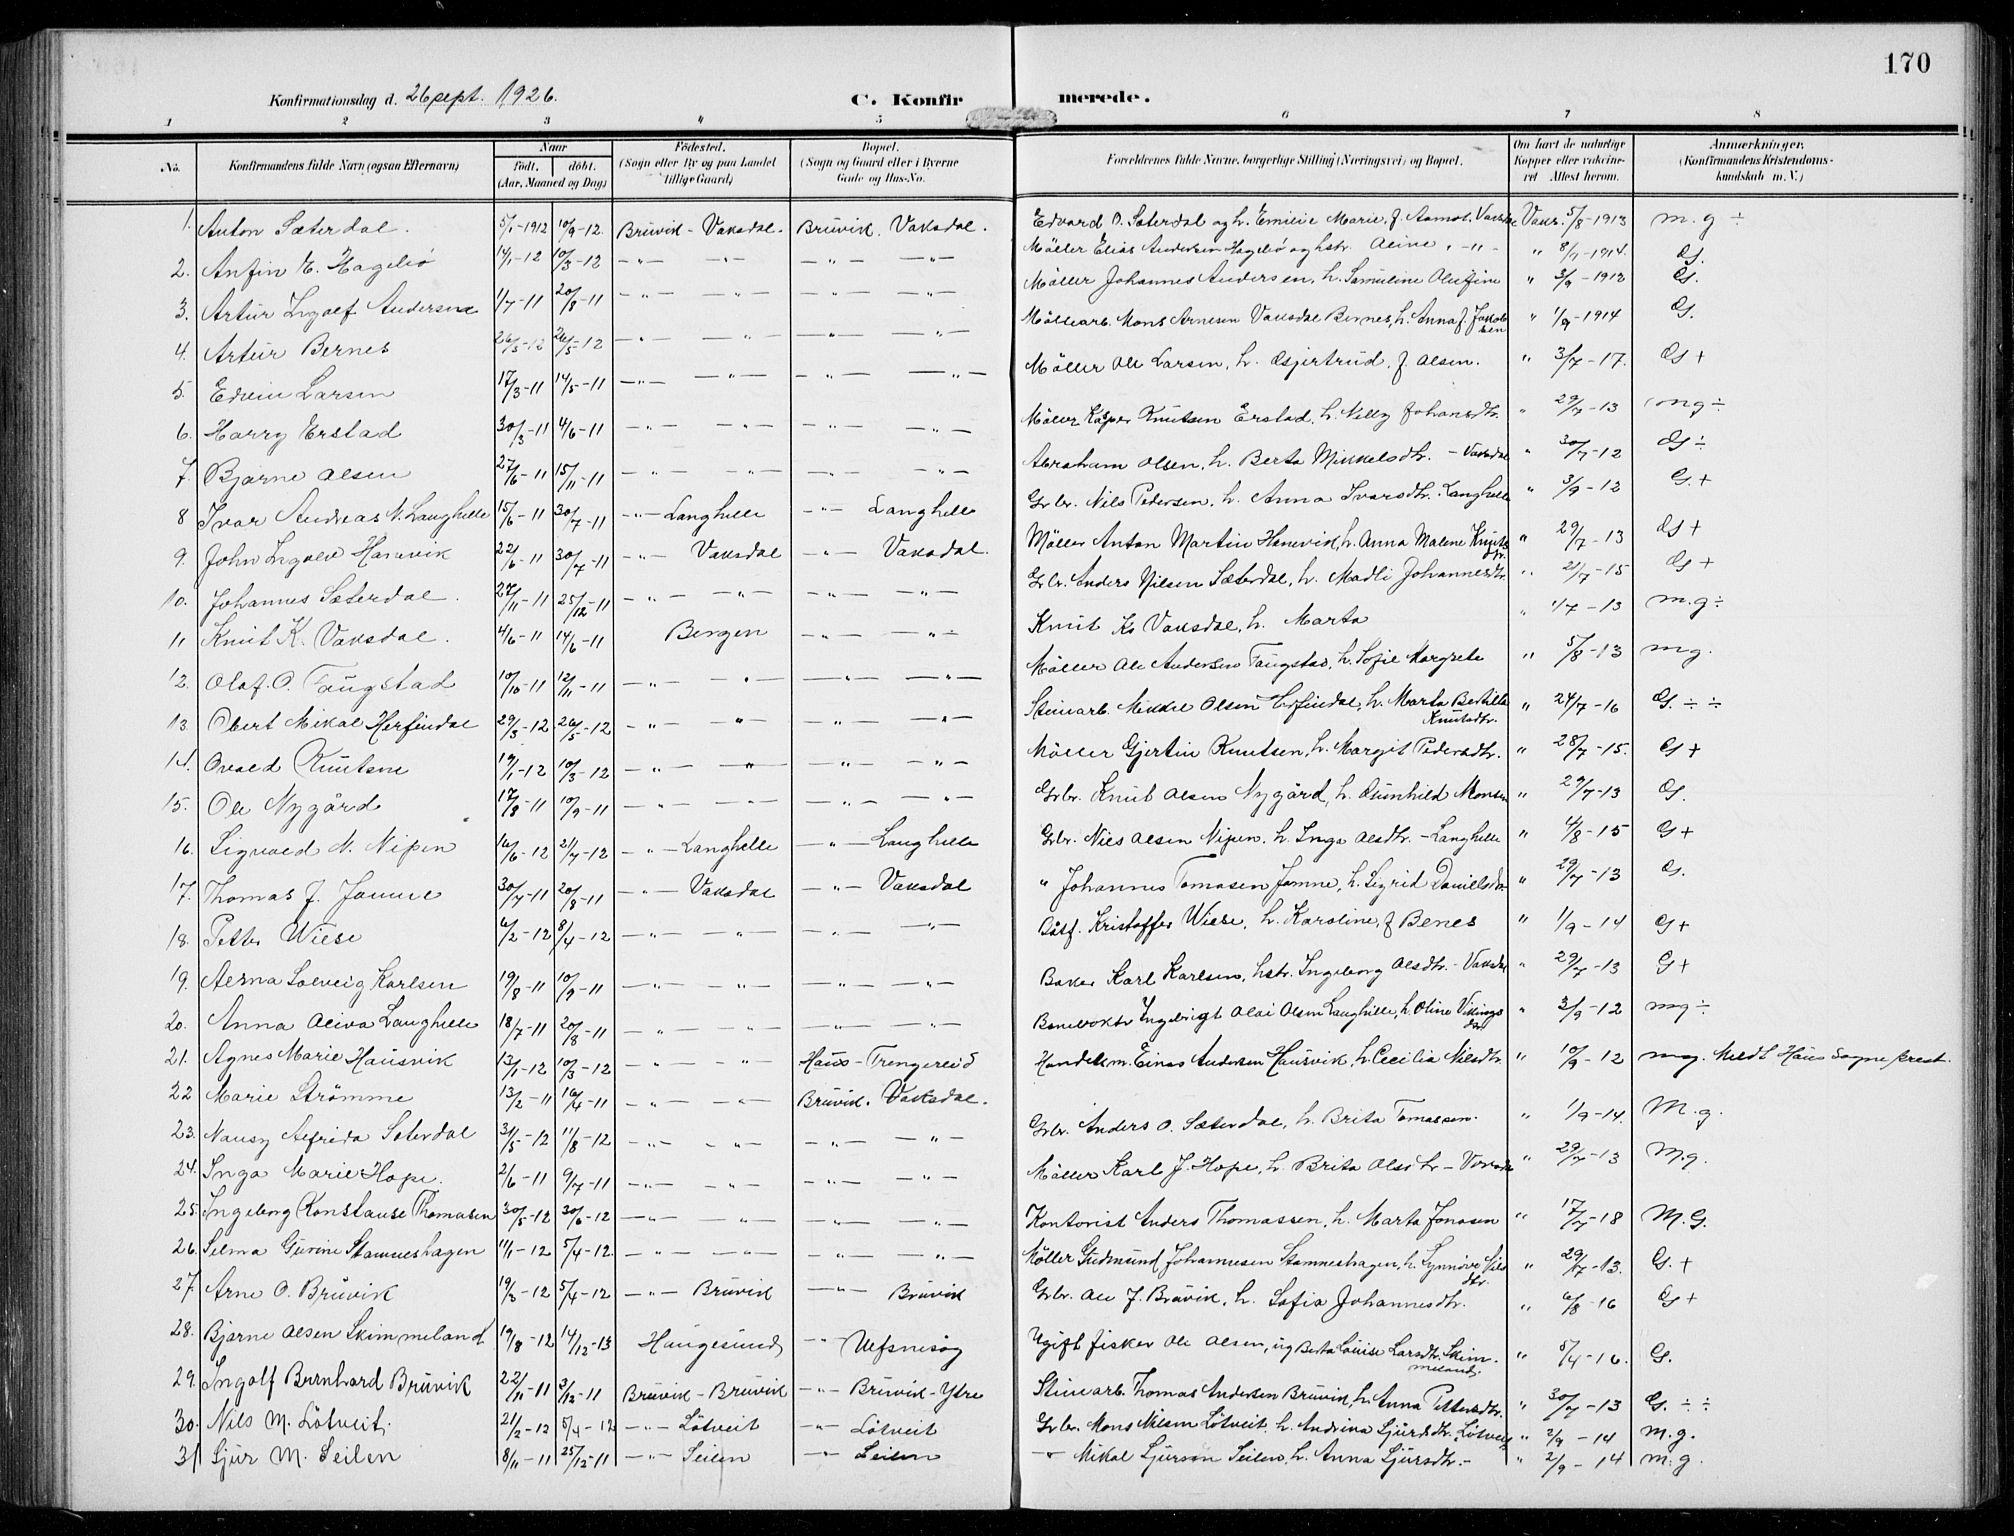 170
Konfirmationsdag d. 26 sept. 1926. C. Konfirmerede.
1 2 3 4 5 6 7 8
No. Konfirmandens fulde Navn (ogsaa Efternavn) Naar født. døbt. (Aar, Maaned og Dag) Fødested. (Sogn eller By og paa Landet tillige Gaard) Bopæl. (Sogn og Gaard eller i Byerne Gade og Hus-No. Forældrenes fulde Navne, borgerlige Stilling (Næringsvei) og Bopæl. Om havt de naturlige Kopper eller vaccineret Attest herom. Anmærkninger. (Konfirmandens Kristendomskundskab m. V.)
1. Anton Sæterdal. 5/1-1912 10/9-12. Brüvik - Vaksdal. Brüvik. Vaksdal. Edvard O. Sæterdal og h. Emilie Marie, f. Aamot. Vaks. 5/8-1913 m.g ÷
2. Anfin E. Hagebø 14/1-12 10/3-12 -"- -"- -"- -"- Møller Elias Andersen Hagebø og hstr. Oline, -"- " 8/7-1914. G.
3. Artur Ingolf Andersen 1/7-11 20/8-11 -"- -"- -"- -"- Møller Johannes Andersen, h. Samuline Olufine " 3/9-1912 G.
4. Artur Bernes 26/3-12 26/5-12 -"- -"- -"- -"- Møllearb. Mons Arnesen Vaksdal Bernes, h. Anna f. Jakobsen " 1/9-1914 G.
5. Edvin Larsen 17/3-11 14/5-11 -"- -"- -"- -"- Møller Ole Larsen, h. Gjertrud, f. Olsen. " 3/7-17. G +
6. Harry Erstad 30/3-11 4/6-11 -"- -"- -"- -"- Møller Kasper Knutsen Erstad, h. Nelly Johansdtr. " 29/7-13 mg ÷
7. Bjarne Olsen 27/6-11 15/11-11 -"- -"- -"- -"- Abraham Olsen, h. Berta Mikkelsdtr. - Vaksdal " 30/7-12 G ÷
8 Ivar Andreas N. Langhelle 15/6-11 30/7-11 -"- Langhelle -"- Langhelle Grbr. Nils Pedersen, h. Anna Ivarsdtr. Langhelle " 3/9-12 G. +
9. John Ingolv Hanevik 22/6-11 30/7-11 -"- Vaksdal -"- Vaksdal. Møller Anton Martin Hanevik, h. Anna Malene Knutsdtr. " 29/7-13 G +
10. Johannes Sæterdal. 27/11-11 25/12-11 -"- -"- -"- -"- Grbr. Anders Nilsen Sæterdal, h. Madli Johannesdtr. " 21/7-15 G +
11 Knut K. Vaksdal. 4/6-11 14/6-11 Bergen -"- -"- Knut Ks Vaksdal, h. Marta " 1/7-13 m.g ÷
12. Olaf. O. Faugstad 10/10-11 12/11-11 -"- -"- -"- -"- Møller Ole Andersen Faugstad, h. Sofie Margrete " 5/8-13 mg.
13. Obert Mikal Herfindal 29/3-12 26/5-12 -"- -"- -"- -"- Steinarb. Mikkel Olsen Herfindal, h. Marta Bertilla Knutsdtr. " 24/7-16 G. ÷ ÷
14. Osvald Knutsen 19/1-12 10/3-12 -"- -"- -"- -"- Møller Gjertin Knutsen, h. Margit Pedersdtr. " 28/7-15. G +
15. Ole Nygård 17/8-11 10/9-11 -"- -"- -"- -"- Grbr. Knut Olsen Nygård, h. Gunhild Monsen " 29/7-13 G.
16. Sigvald N. Nipen 16/6-12 21/7-12 -"- Langhelle -"- Langhelle Grbr. Nils Olsen Nipen, h. Inga Olsdtr. - Langhelle " 4/8-15 G +
17. Thomas J. Jamne 30/7-11 20/8-11 -"- Vaksdal -"- Vaksdal " Johannes Tomasen Jamne, h. Sigrid Danielsdtr " 29/7-13 G.
18. Petter Wiese 6/2-12 8/4-12 -"- -"- -"- -"- Kristoffer Wiese, h. Karoline, f Benes " 1/9-14 G +
19. Alma Solveig Karlsen 19/8-11 10/9-11 -"- -"- -"- -"- Baker Karl Karlsen, hstr. Ingeborg Olsdtr. - Vaksdal " 29/7-13 G +
20. Anna Oliva Langhelle 18/7-11 20/8-11 -"- -"- -"- -"- Banevokter Ingebrigt Olai Olsen Langhelle, h. Oline Vikingsdtr " 3/9-12 mg ÷
21. Agnes Marie Hausvik 13/1-12 10/3-12 -"- -"- Haus - Trengereid Handelsm. Einar Andersen Hausvik, h. Cecilia Nilsdtr. " 10/9-12 mg. Meldt Haus Sogneprest.
22 Marie Strømme 13/2-11 16/4-11 -"- -"- Brüvik. Vaksdal.
23. Nansy Alfrida Sæterdal 31/5-12 11/8-12 -"- -"- -"- -"- Grbr. Anders O. Sæterdal, h. Brita Tomassen. " 1/9-14. M.g.
24. Inga Marie Hope. 2/6-11 9/7-11 -"- -"- -"- -"- Møller Karl J. Hope, h. Brita Olsdtr - Vaksdal " 29/7-13 M.g.
25. Ingeborg Konstanse Thomasen 30/5-12 30/6-12 -"- -"- -"- -"- Kontorist Anders Thomassen, h. Marta Jonasen " 17/7-18 M.G.
26. Selma Gurine Stamneshagen 11/1-12 5/4-12. -"- -"- -"- -"- Møller Gudmund Johannesen Stamneshagen, h. Synnøve Nilsdtr. " 29/7-13. G. +
27. Arne O. Brüvik 19/3-12 5/4-12 -"- Brüvik -"- Brüvik Grbr. Ole J. Brüvik, h. Sofia Johannesdtr. " 6/8-16 G +
28. Bjarne Olsen Skimmeland 19/8-12 14/12-13 Haugesund -"- Ugift fisker Ole Olsen, ug Berta Louise Larsdtr. Skimmeland. " 5/4-16. G.
29. Ingolf Bernhard Brüvik 22/11-11 3/12-11 Brüvik - Brüvik -"- Brüvik-Ytre Steinarb. Thomas Andersen Brüvik, h. Anna Pettersdtr. " 30/7-13 G. ÷ ÷
30. Nils M. Løtveit. 21/2-12 5/4-12 -"- Løtveit -"- Løtveit Grbr. Mons Nilsen Løtveit, h. Andrina Sjursdtr. Løtveit " 2/9-14 m.g.
31 Sjur M. Seilen 8/11-11 25/12-11 -"- Seilen -"- Seilen -"- Mikal Sjursen Seilen, h. Anna Sjursdtr. - " 2/9-14 m.g.